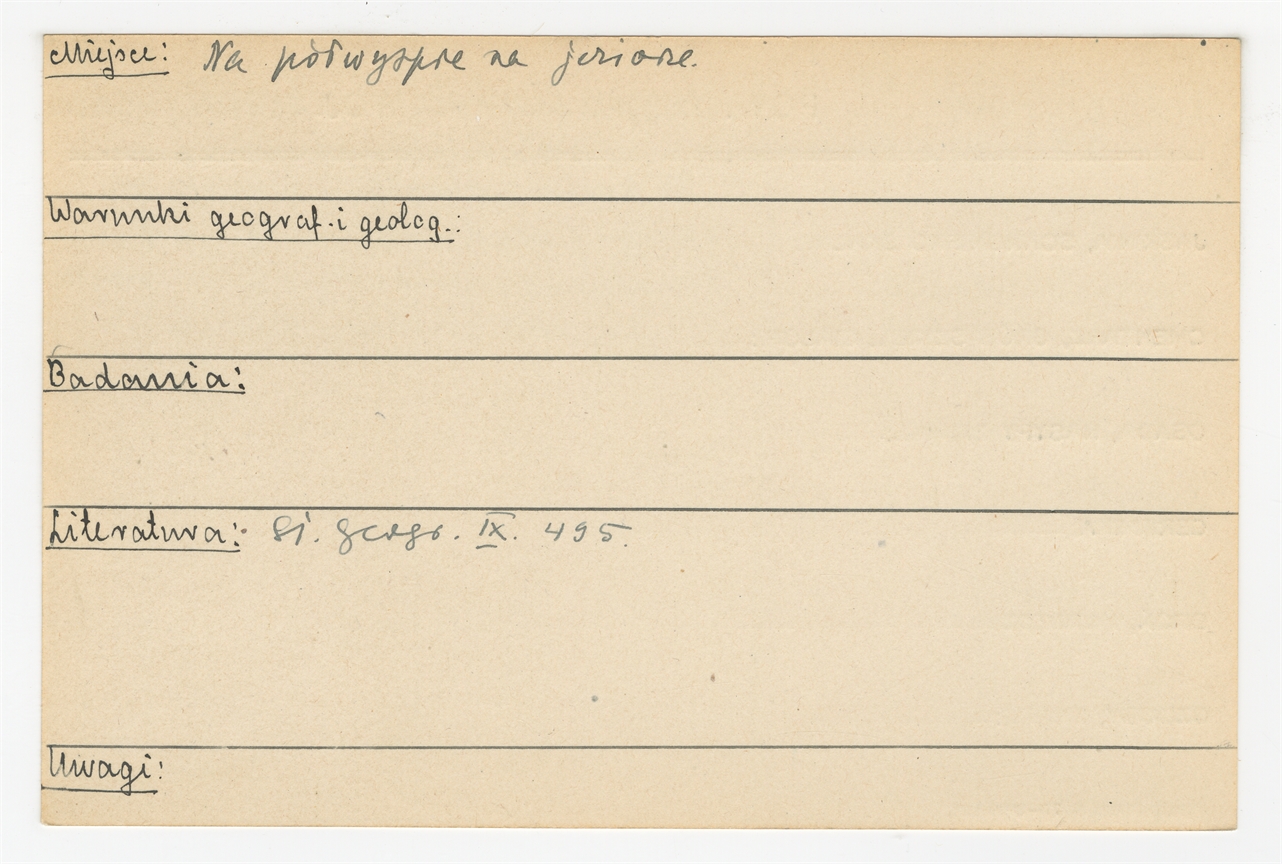 Miejsce: Na półwyspie na jeziorze.
Warunki geograf. i geolog.:
Badania:
Literatura: Sł. geogr. IX. 495.
Uwagi: